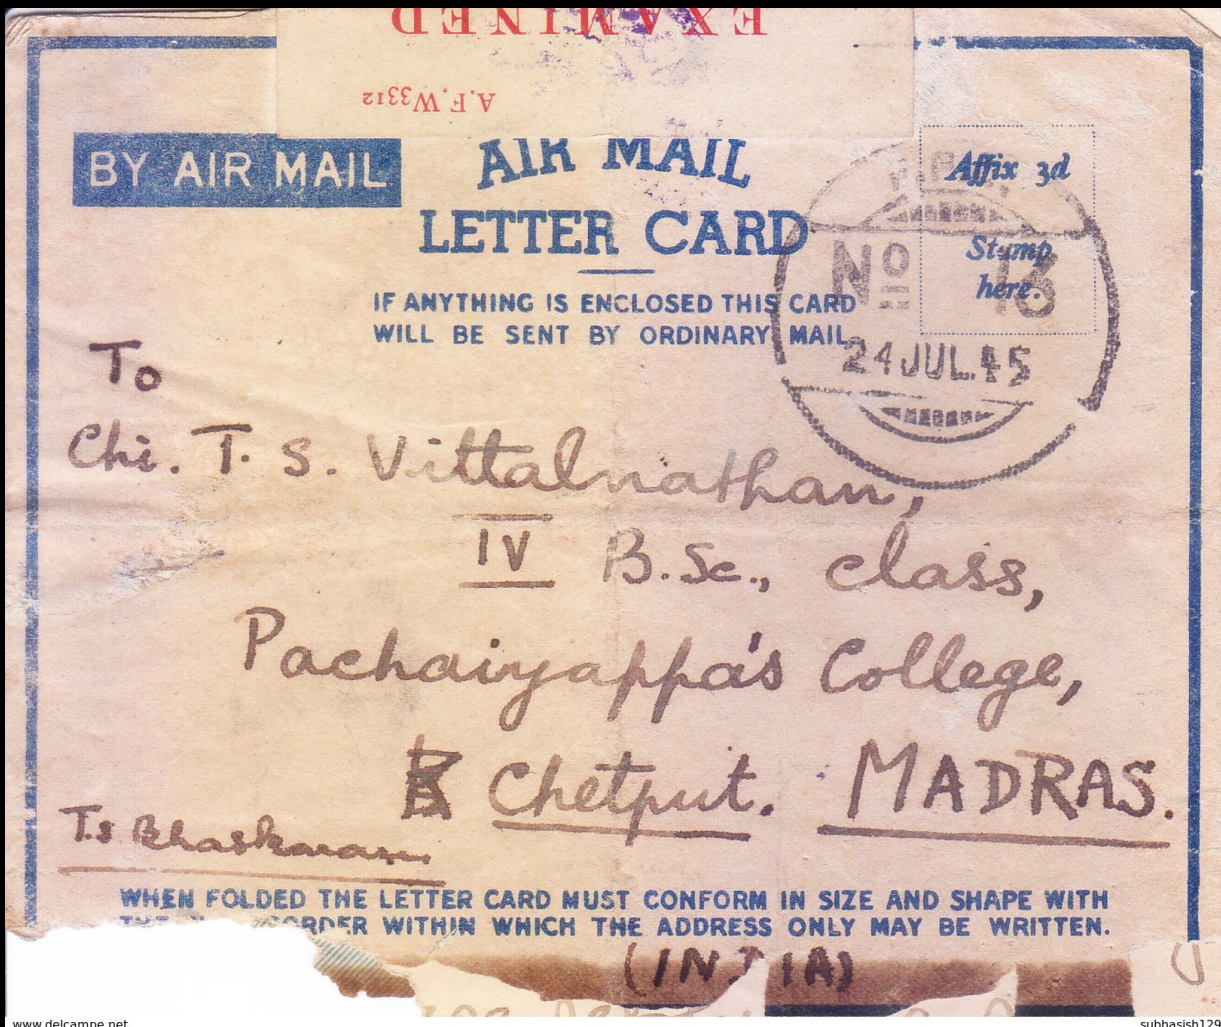 EXAMINED
A.F.W3312
BY AIR MAIL
AIR MAIL
LETTER CARD
Affix 3d
Stamp
here.
IF ANYTHING IS ENCLOSED THIS CARD
WILL BE SENT BY ORDINARY MAIL.
No 13
24 JUL.45
To
Chi. T. S. Vittalnathan,
IV B.Sc., class,
Pachaiyappa's College,
Chetput. MADRAS.
T.S Bhaskaran
WHEN FOLDED THE LETTER CARD MUST CONFORM IN SIZE AND SHAPE WITH
THE BORDER WITHIN WHICH THE ADDRESS ONLY MAY BE WRITTEN.
(INDIA)
www.delcampe.net
subhasish129